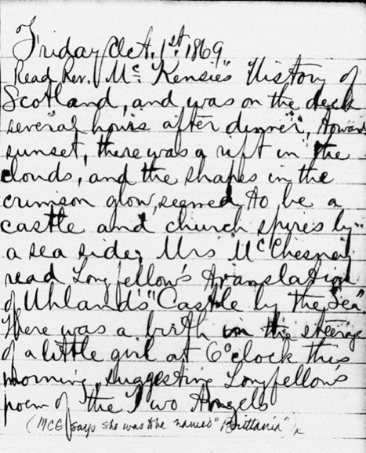 Friday Oct. 1st. 1869
Read Rev. Mc Kensie's "History of
Scotland, and was on the deck
several hours after dinner, toward
sunset, there was a rift in the
clouds, and the shapes in the
crimson glow, seemed to be a
castle and church spires by
a sea side, Mrs McChesney
read Longfellow's translation
of Uhland's "Castle by the Sea".
There was a birth in the steerage
of a little girl at 6 o'clock this
morning, suggesting Longfellow's
poem of the Two Angels
(MCE says she was to be named "Brittania"